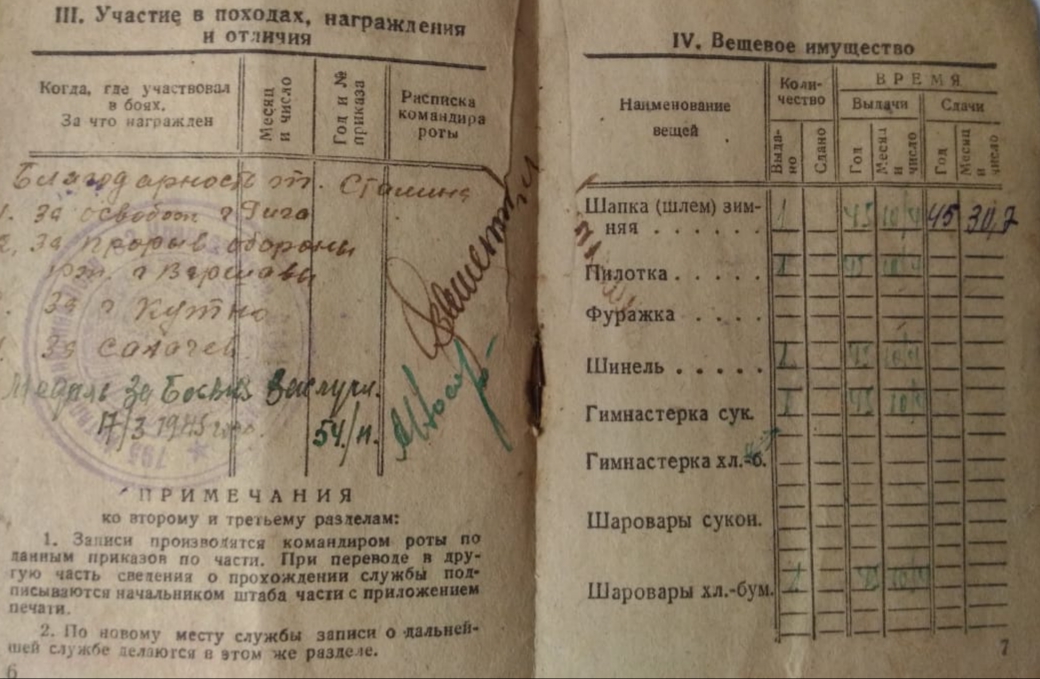 III. Участие в походах, награждения
и отличия
Когда, где участвовал
в боях.
За что награжден
Месяц
и число
Год и №
приказа
Расписка
командира
роты
Благодарность от т. Сталина
1. За освобож г Рига
2. За прорыв обороны
г Варшавы
За г Кутно
За Сохачев
Медаль За Боевые Заслуги.
17/3 1945 года. 54/н.
ПРИМЕЧАНИЯ
ко второму и третьему разделам:
1. Записи производятся командиром роты по
данным приказов по части. При переводе в дру-
гую часть сведения о прохождении службы под-
писываются начальником штаба части с приложением
печати.
2. По новому месту службы записи о дальней-
шей службе делаются в этом же разделе.
6
IV. Вещевое имущество
Наименование
вещей
Коли-
чество
ВРЕМЯ
Выдачи
Сдачи
Выда-
но
Сдано
Год
Месяц
и
число
Год
Месяц
и
число
Шапка (шлем) зим-
няя . . . . . . 1 45 45 30,7
Пилотка . . . . .
Фуражка . . . .
Шинель . . . . .
Гимнастерка сук.
Гимнастерка хл.-б.
Шаровары сукон.
Шаровары хл.-бум.
7